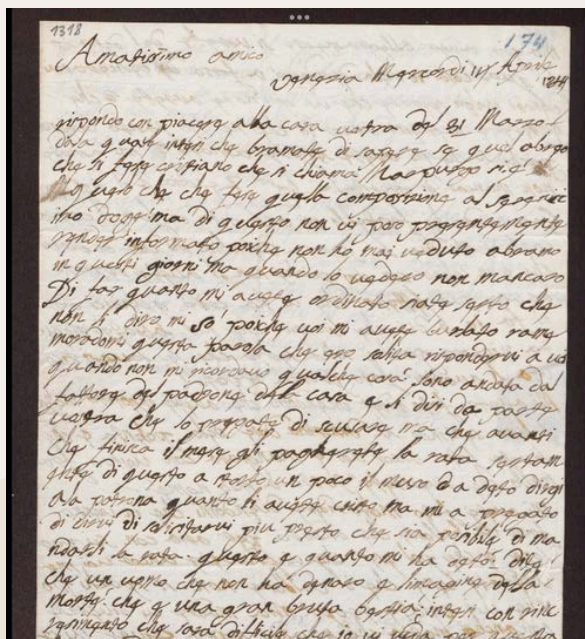 1318
174
Amatissimo amico
Venezia Mercordi Aprile
rispondo con piacere alla cara vostra del 31 Marzo
dala quale intesi che bramate di sapere se quel abreo
che si fece cristiano che si chiama se è
vero che che fece quella composizione al sereniss
imo doge ma di questo non vi poso presentemente
render informato poiche non ho mai veduto abramo
in questi giorni ma quando lo vedero non mancaro
Di far quanto mi avete ordinato siate serto che
non diro mi so poiche voi mi avete burlato rame
moradomi questa parola che ero solita rispondervi a voi
quando non mi ricordavo qualche cosa sono andata dal
fattore del padrone dela casa e li disi da parte
vostra che lo pregate di scusare ma che avanti
che finisca il mese gli pagherete la rata sertam
ente di questo a storto un poco il muso e a deto dirgi
a la patrona quanto li avete scrito ma mi a pregato
di scrivervi di solicitarvi piu presto che sia posibile di ma
ndarli la rata. questo e quanto mi ha detto. dice
che un uomo che non ha denaro e l'imagine della
morte che e una gran bruta bestia: intesi con rinc
resimento che sara dificile che io vi veda